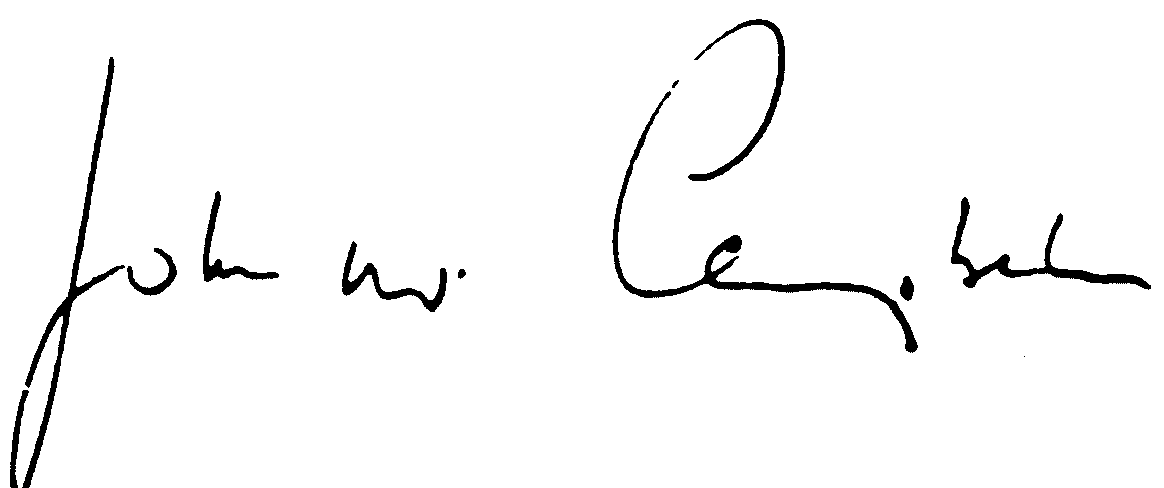 John W. Campbell